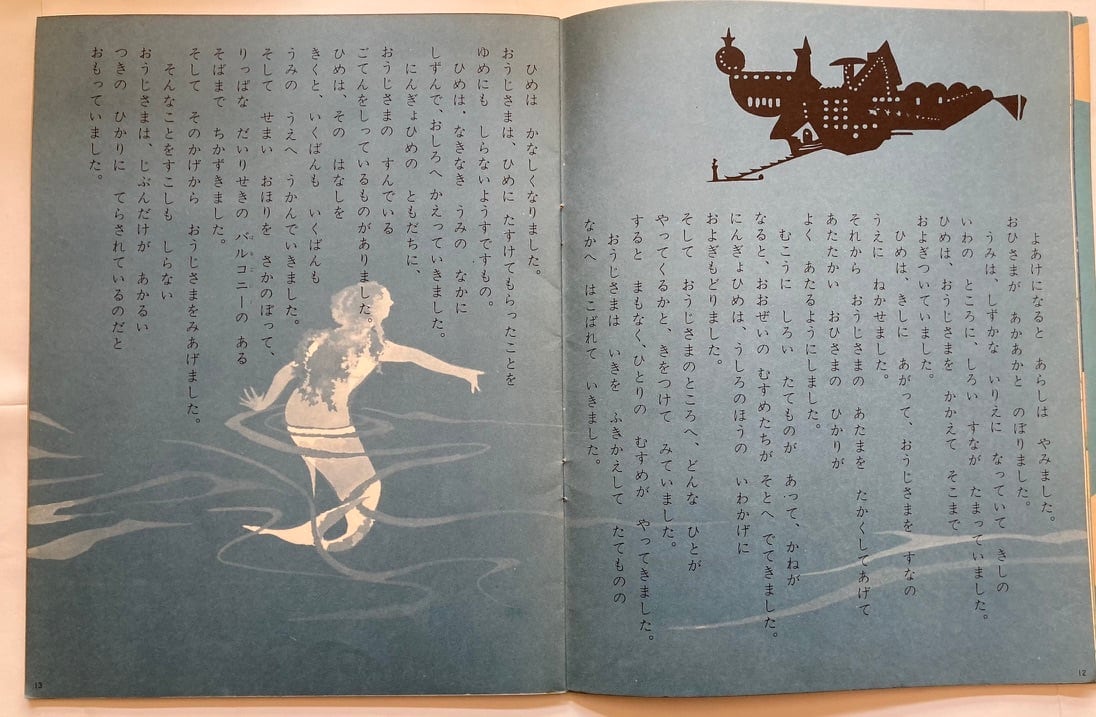 よあけになると　あらしは　やみました。
おひさまが　あかあかと　のぼりました。
うみは、しずかな　いりえに　なっていて　きしの
いわの　ところに、しろい　すなが　たまっていました。
ひめは、おうじさまを　かかえて　そこまで
およぎついていました。
ひめは、きしに　あがって、おうじさまを　すなの
うえに　ねかせました。
それから　おうじさまの　あたまを　たかくしてあげて
あたたかい　おひさまの　ひかりが
よく　あたるようにしました。
むこうに　しろい　たてものが　あって、かねが
なると、おおぜいの　むすめたちが　そとへ　でてきました。
にんぎょひめは、うしろのほうの　いわかげに
およぎもどりました。
そして　おうじさまのところへ、どんな　ひとが
やってくるかと、きをつけて　みていました。
すると　まもなく、ひとりの　むすめが　やってきました。
おうじさまは　いきを　ふきかえして　たてものの
なかへ　はこばれて　いきました。
12
ひめは　かなしくなりました。
おうじさまは、ひめに　たすけてもらったことを
ゆめにも　しらないようすですもの。
ひめは、なきなき　うみの　なかに
しずんで、おしろへ　かえっていきました。
にんぎょひめの　ともだちに、
おうじさまの　すんでいる
ごてんをしっているものがありました。
ひめは、その　はなしを
きくと、いくばんも　いくばんも
うみの　うえへ　うかんでいきました。
そして　せまい　おほりを　さかのぼって、
りっぱな　だいりせきの　バルコニーの　ある
そばまで　ちかずきました。
そして　そのかげから　おうじさまをみあげました。
そんなことをすこしも　しらない
おうじさまは、じぶんだけが　あかるい
つきの　ひかりに　てらされているのだと
おもっていました。
13